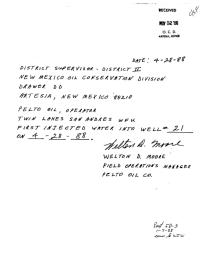 RECEIVED
MAY 02 '88
O. C. D.
ARTESIA, OFFICE
DATE: 4-28-88
DISTRICT SUPERVISOR - DISTRICT II
NEW MEXICO OIL CONSERVATION DIVISION
DRAWER DD
ARTESIA, NEW MEXICO 88210
PELTO OIL, OPERATOR
TWIN LAKES SAN ANDRES WFU
FIRST INJECTED WATER INTO WELL # 21
ON 4 - 28 - 88.
Welton D. Moore
WELTON D. MOORE
FIELD OPERATIONS MANAGER
PELTO OIL CO.